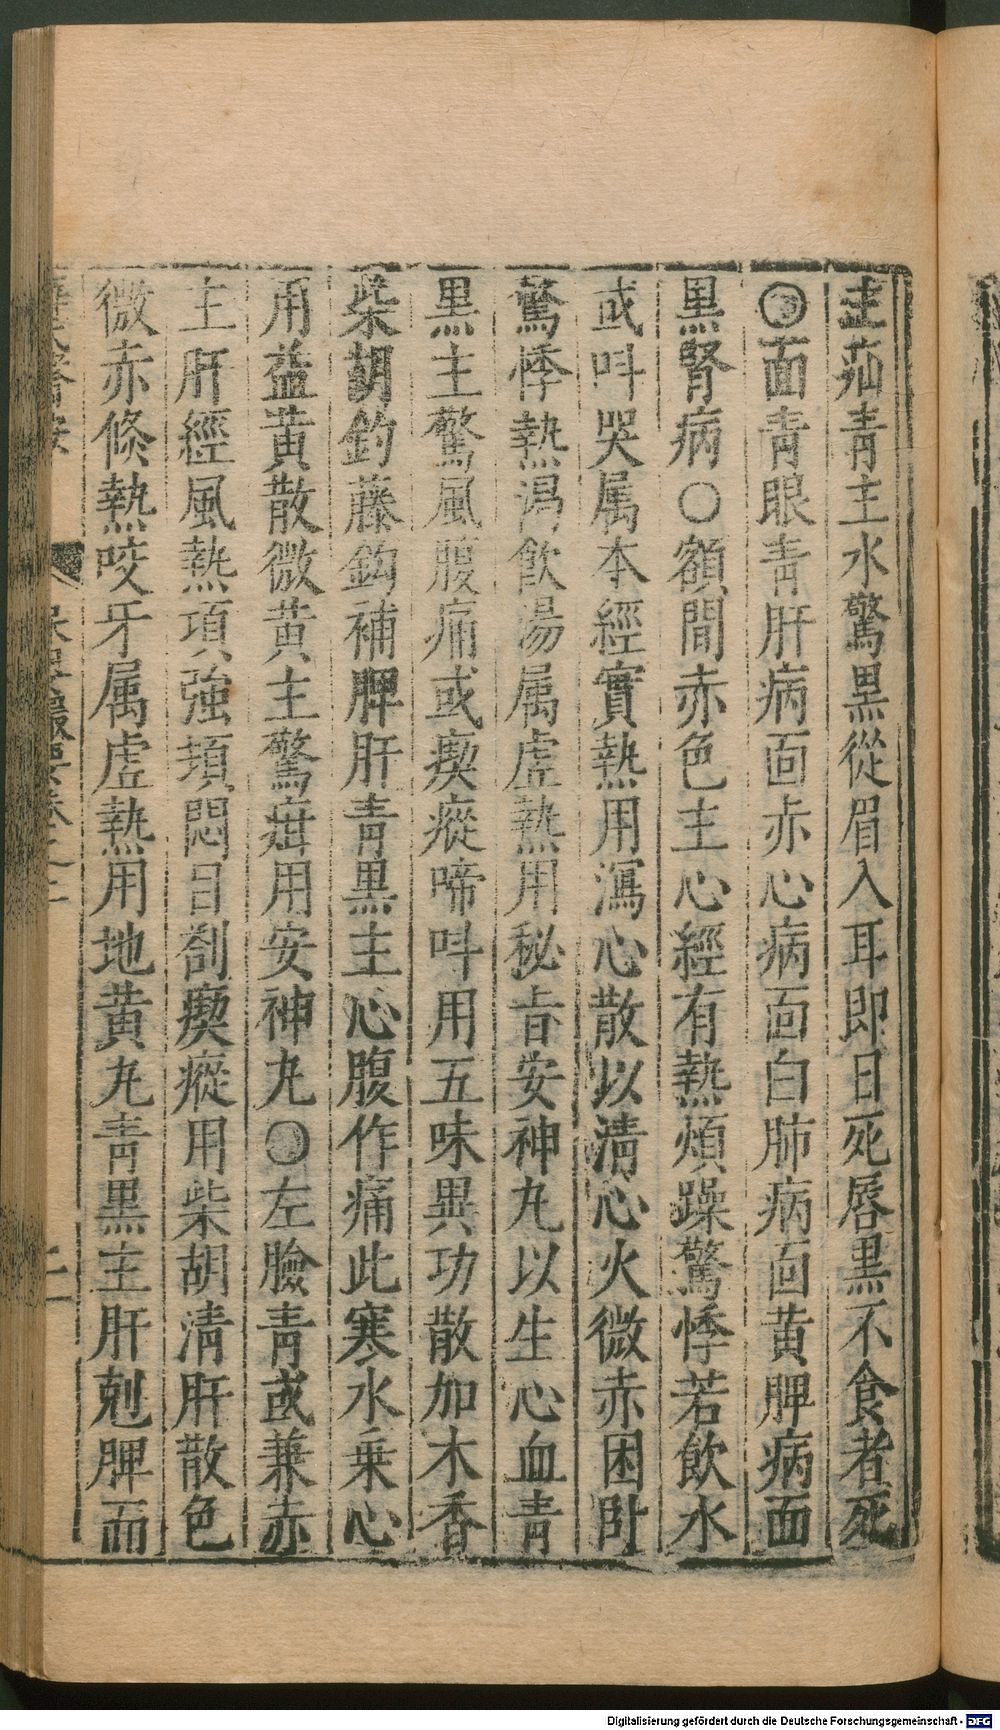 主茹青主水驚黒從眉入耳即日死唇黒不食者死
〇面青眼青肝病面赤心病面白肺病面黄脾病面
黒腎病〇額間赤色主心經有熱煩躁驚悸若飲水
或呌哭属本經實熱用瀉心散以清心火微赤困卧
驚悸熱渴飲湯属虚熱用秘旨安神丸以生心血青
黒主驚風腹痛或瘈瘲啼呌用五味異功散加木香
柴胡鈎藤鈎補脾肝青黒主心腹作痛此寒水乗心
用益黄散微黄主驚疳用安神丸〇左臉青或兼赤
主肝經風熱項強頓悶目劄瘈瘲用柴胡清肝散色
微赤倏熱咬牙属虚熱用地黄丸青黒主肝剋脾而
Digitalisierung gefördert durch die Deutsche Forschungsgemeinschaft - DFG